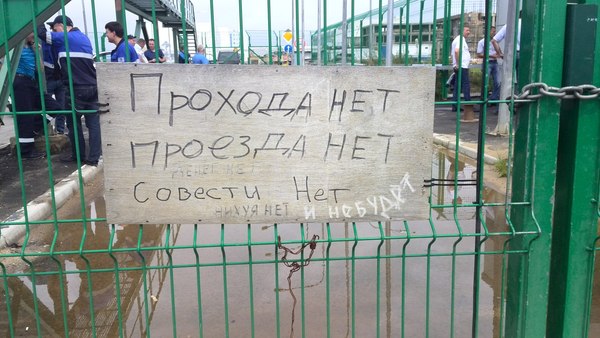 Прохода нет
проезда нет
денег нет
Совести Нет
нихуя нет и не будет